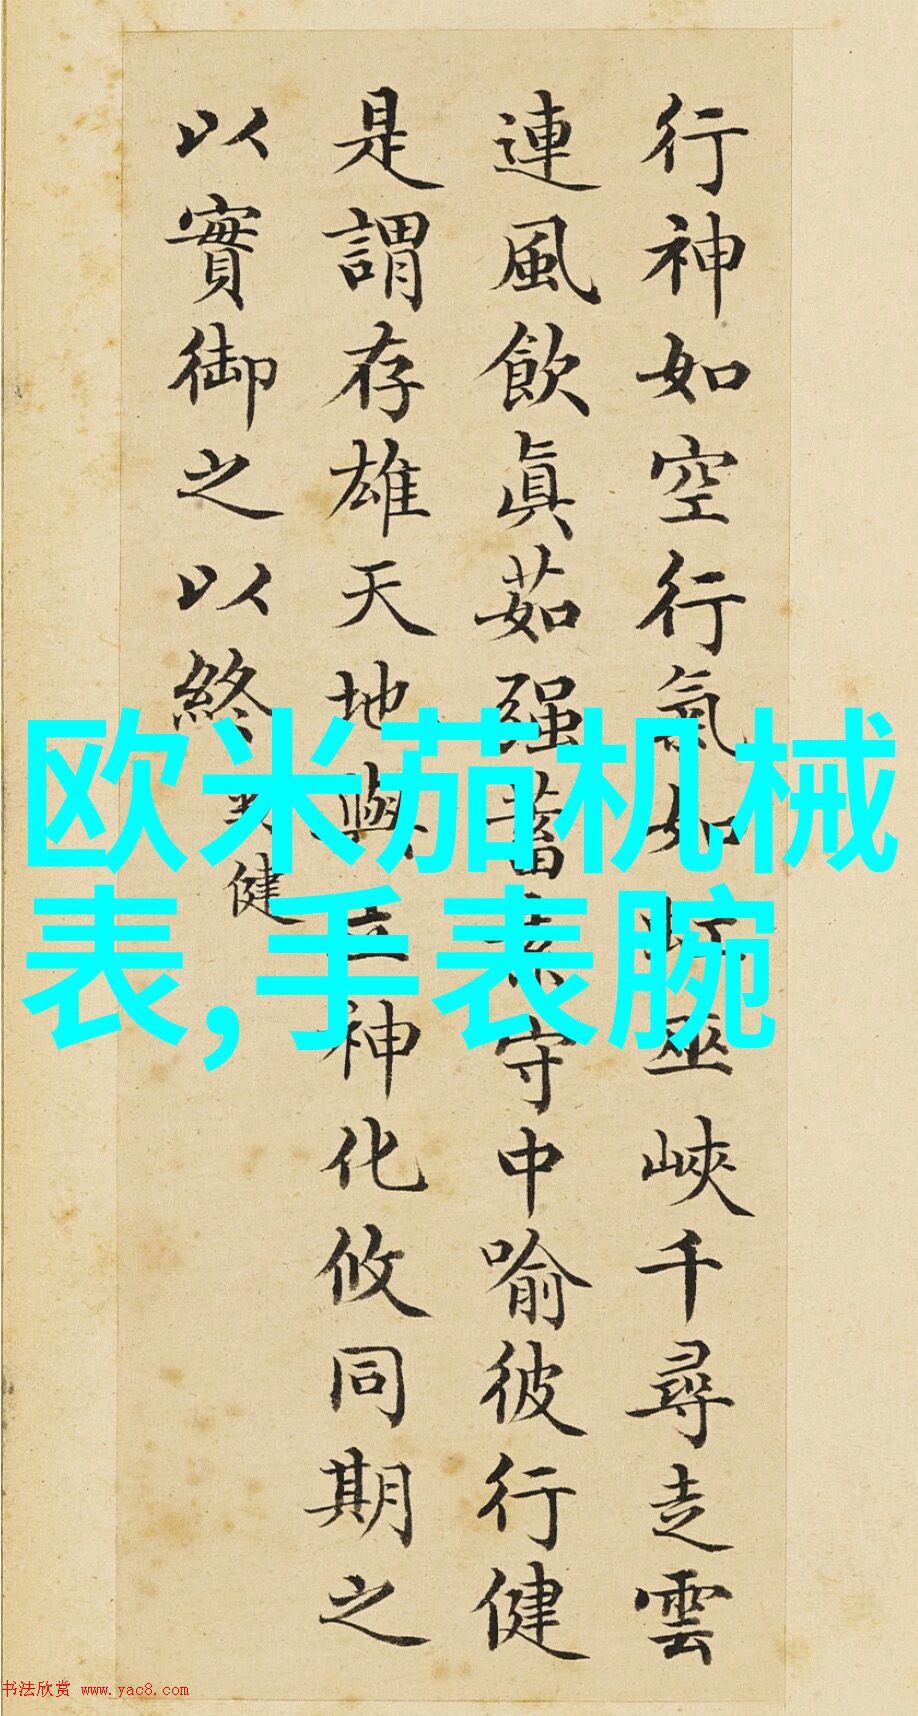 行神如空行氣如虹巫峽千尋走雲
連風飲眞茹强蓄素守中喻彼行健
是謂存雄天地與立神化攸同期之
以實御之以終
健
欧米茄机械
表,手表腕
书法欣赏 www.yac8.com